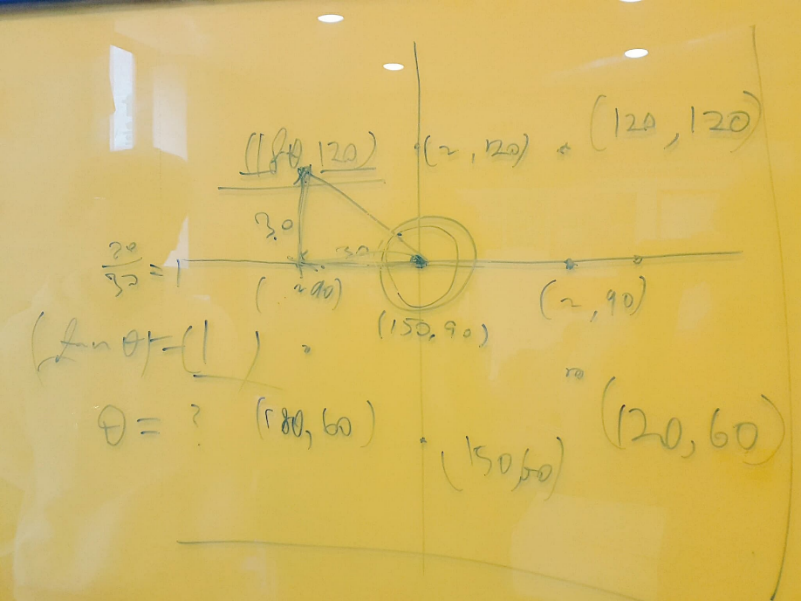 (180, 120) (~, 120) (120, 120)
30
30
30/30 = 1
(~ 90) (150, 90) (~, 90)
(tan θ) = (1)
θ = ? (180, 60) (150, 60) (120, 60)